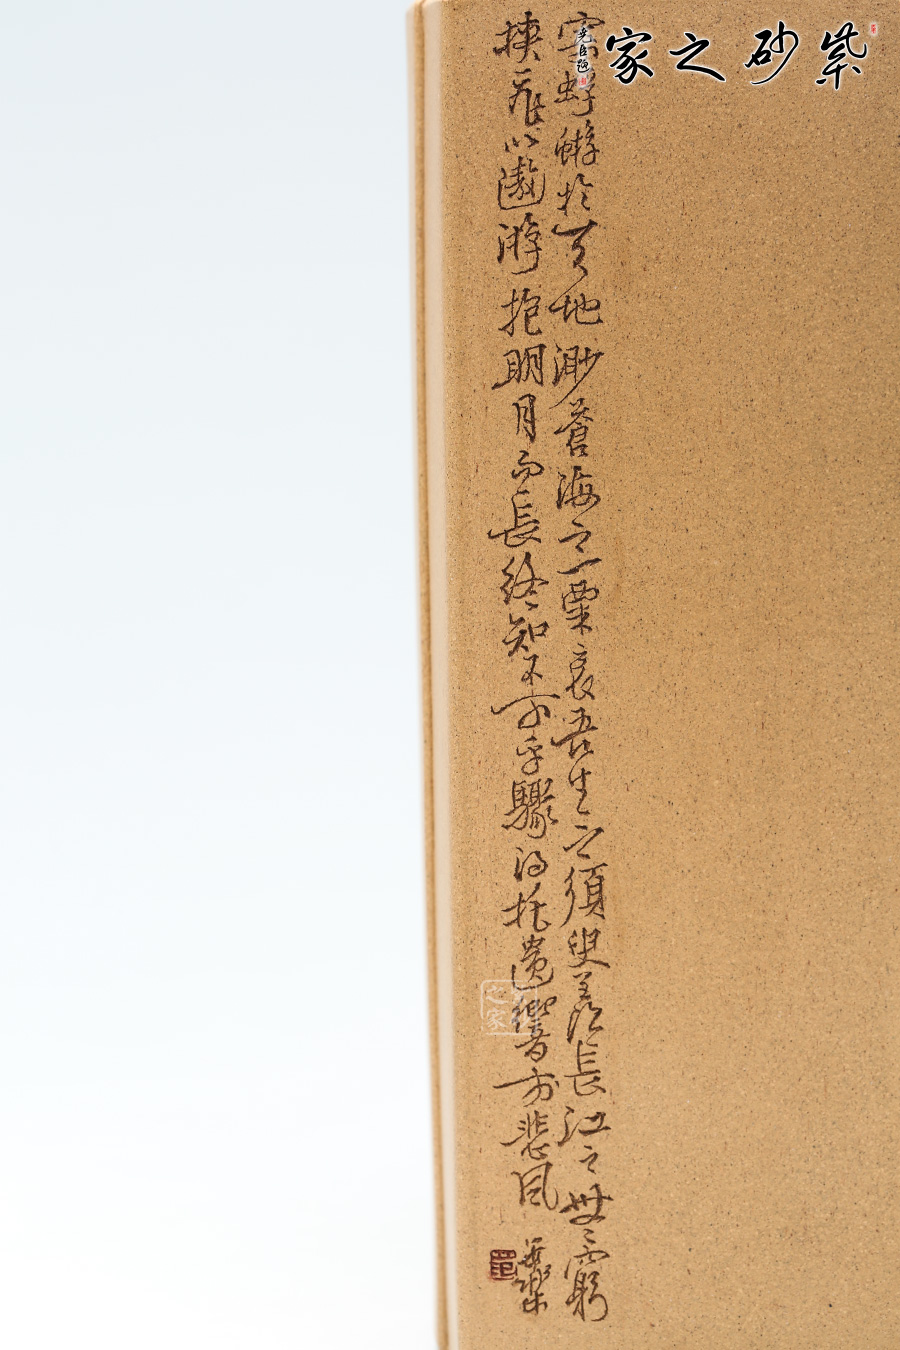 紫砂之家
寄蜉蝣於天地渺蒼海之一粟哀吾生之須臾羨長江之無窮
挾飛以遨游抱明月而長終知不可乎驟得托遺響於悲風